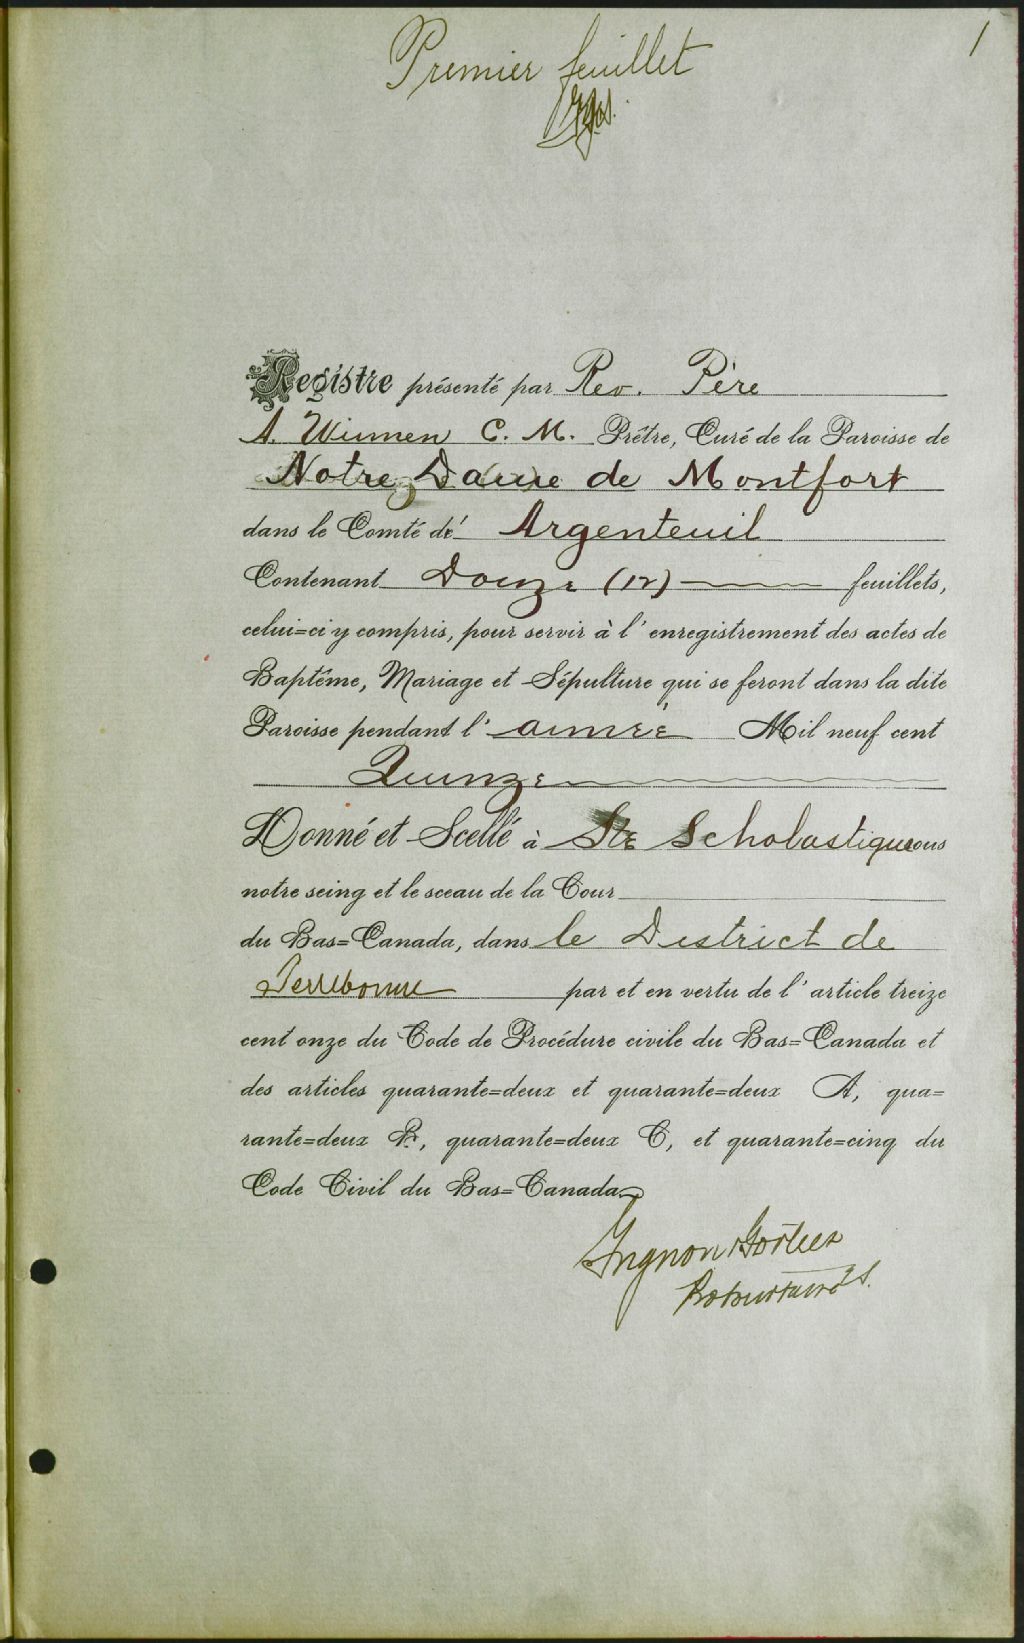 1
Premier feuillet
Registre présenté par Rev. Père
A. Winnen C. M. Prêtre, Curé de la Paroisse de
Notre Dame de Montfort
dans le Comté d' Argenteuil
Contenant Douze (12) feuillets,
celui=ci y compris, pour servir à l'enregistrement des actes de
Baptême, Mariage et Sépulture qui se feront dans la dite
Paroisse pendant l' année Mil neuf cent
Quinze
Donné et Scellé à Ste Scholastique sous
notre seing et le sceau de la Cour
du Bas=Canada, dans le District de
Terrebonne par et en vertu de l'article treize
cent onze du Code de Procédure civile du Bas=Canada et
des articles quarante=deux et quarante=deux A, qua=
rante=deux B, quarante=deux C, et quarante=cinq du
Code Civil du Bas=Canada